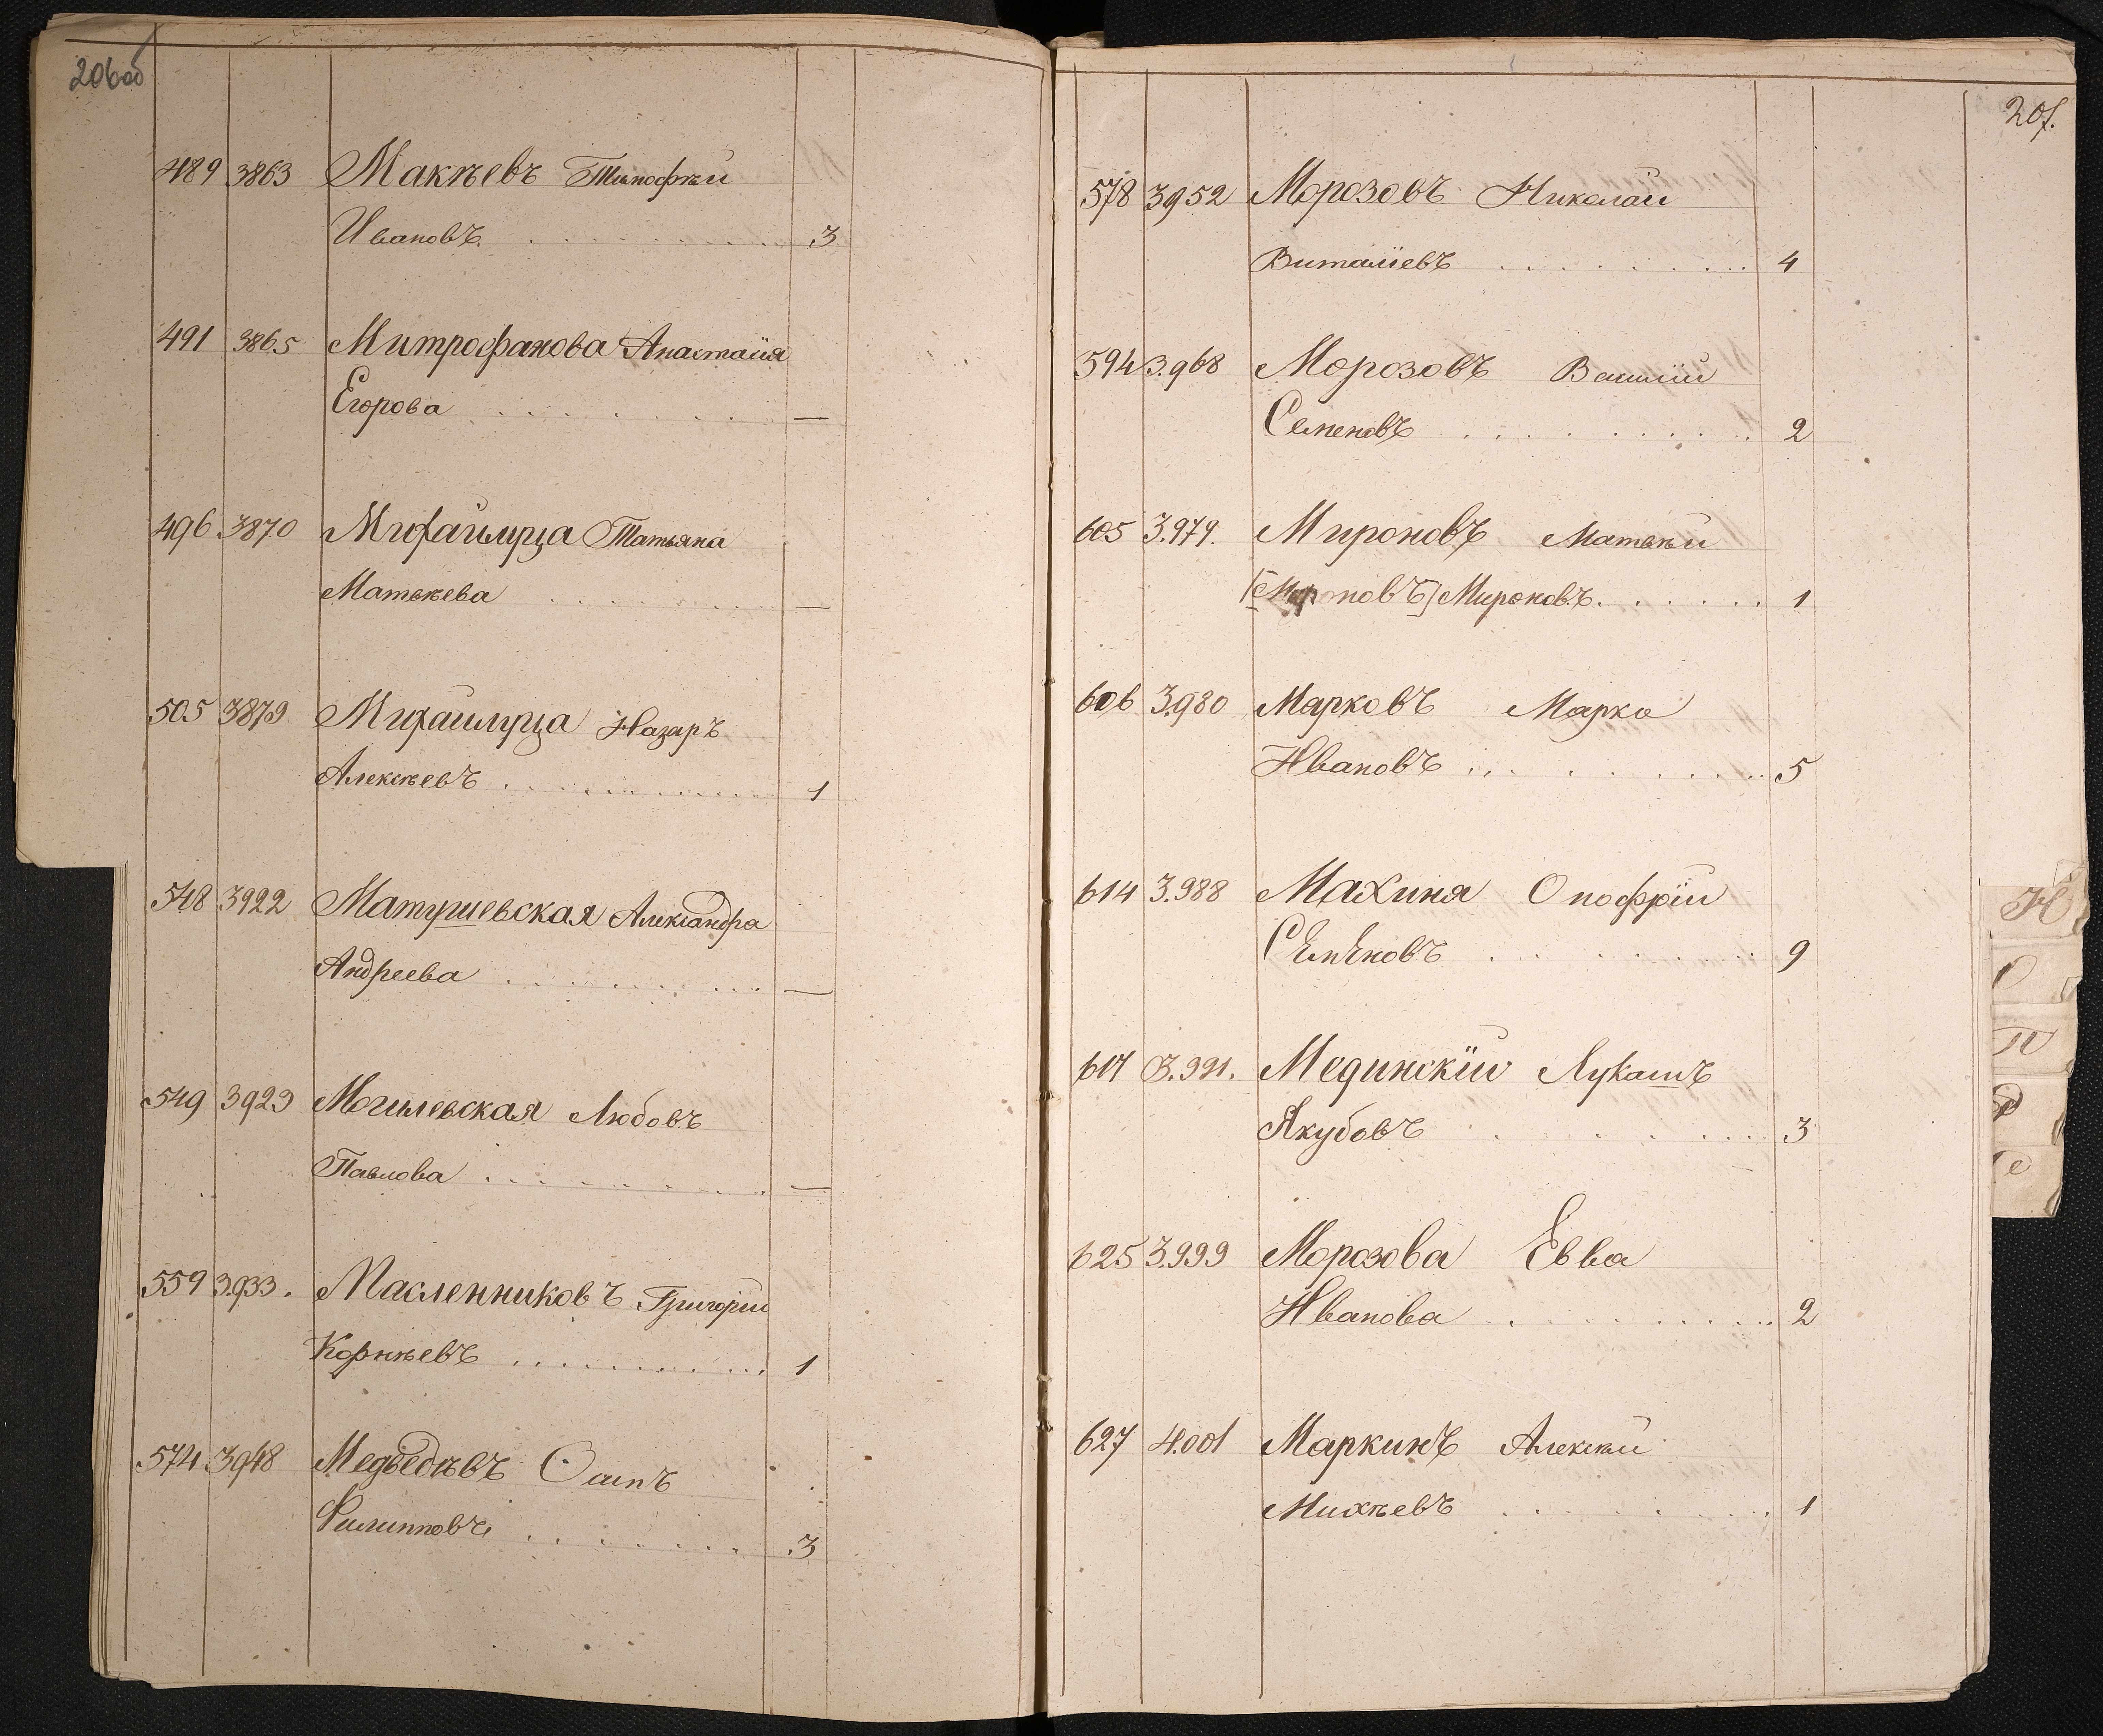 206об
489 3863 Макѣевъ Тимофѣй
Ивановъ. . . . . . . . . . 3
491 3865 Митрофанова Анастасія
Егорова . . . . . . . . —
496 3870 Михайлуца Татьяна
Матвѣева . . . . . . . . —
505 3879 Михайлуца Назаръ
Алексѣевъ . . . . . . . . . . 1
548 3922 Матушевская Александра
Андреева . . . . . . . . . —
549 3923 Могилевская Любовъ
Павлова . . . . . . . . . —
559 3.933. Масленниковъ Григорій
Корнѣевъ . . . . . . . . . . 1
574 3948 Медвѣдѣвъ Осипъ
Филипповъ . . . . . . . . 3
207.
578 3952 Морозовъ Николай
Виталіевъ . . . . . . . . . 4
594 3.968 Морозовъ Василій
Семеновъ . . . . . . . . . 2
605 3.979. Мироновъ Матвѣй
[Мироновъ] Мироновъ. . . . . . . 1
606 3.980 Марковъ Марко
Ивановъ . . . . . . . . . 5
614 3.988 Махиня Онофрій
Семеновъ . . . . . . . . 9
617 3.991. Мединскій Лукашъ
Якубовъ . . . . . . . . 3
625 3.999 Морозова Евва
Иванова . . . . . . . . . 2
627 4.001 Маркинъ Алексѣй
Михѣевъ . . . . . . . . . 1
Н
О
П
Р
С